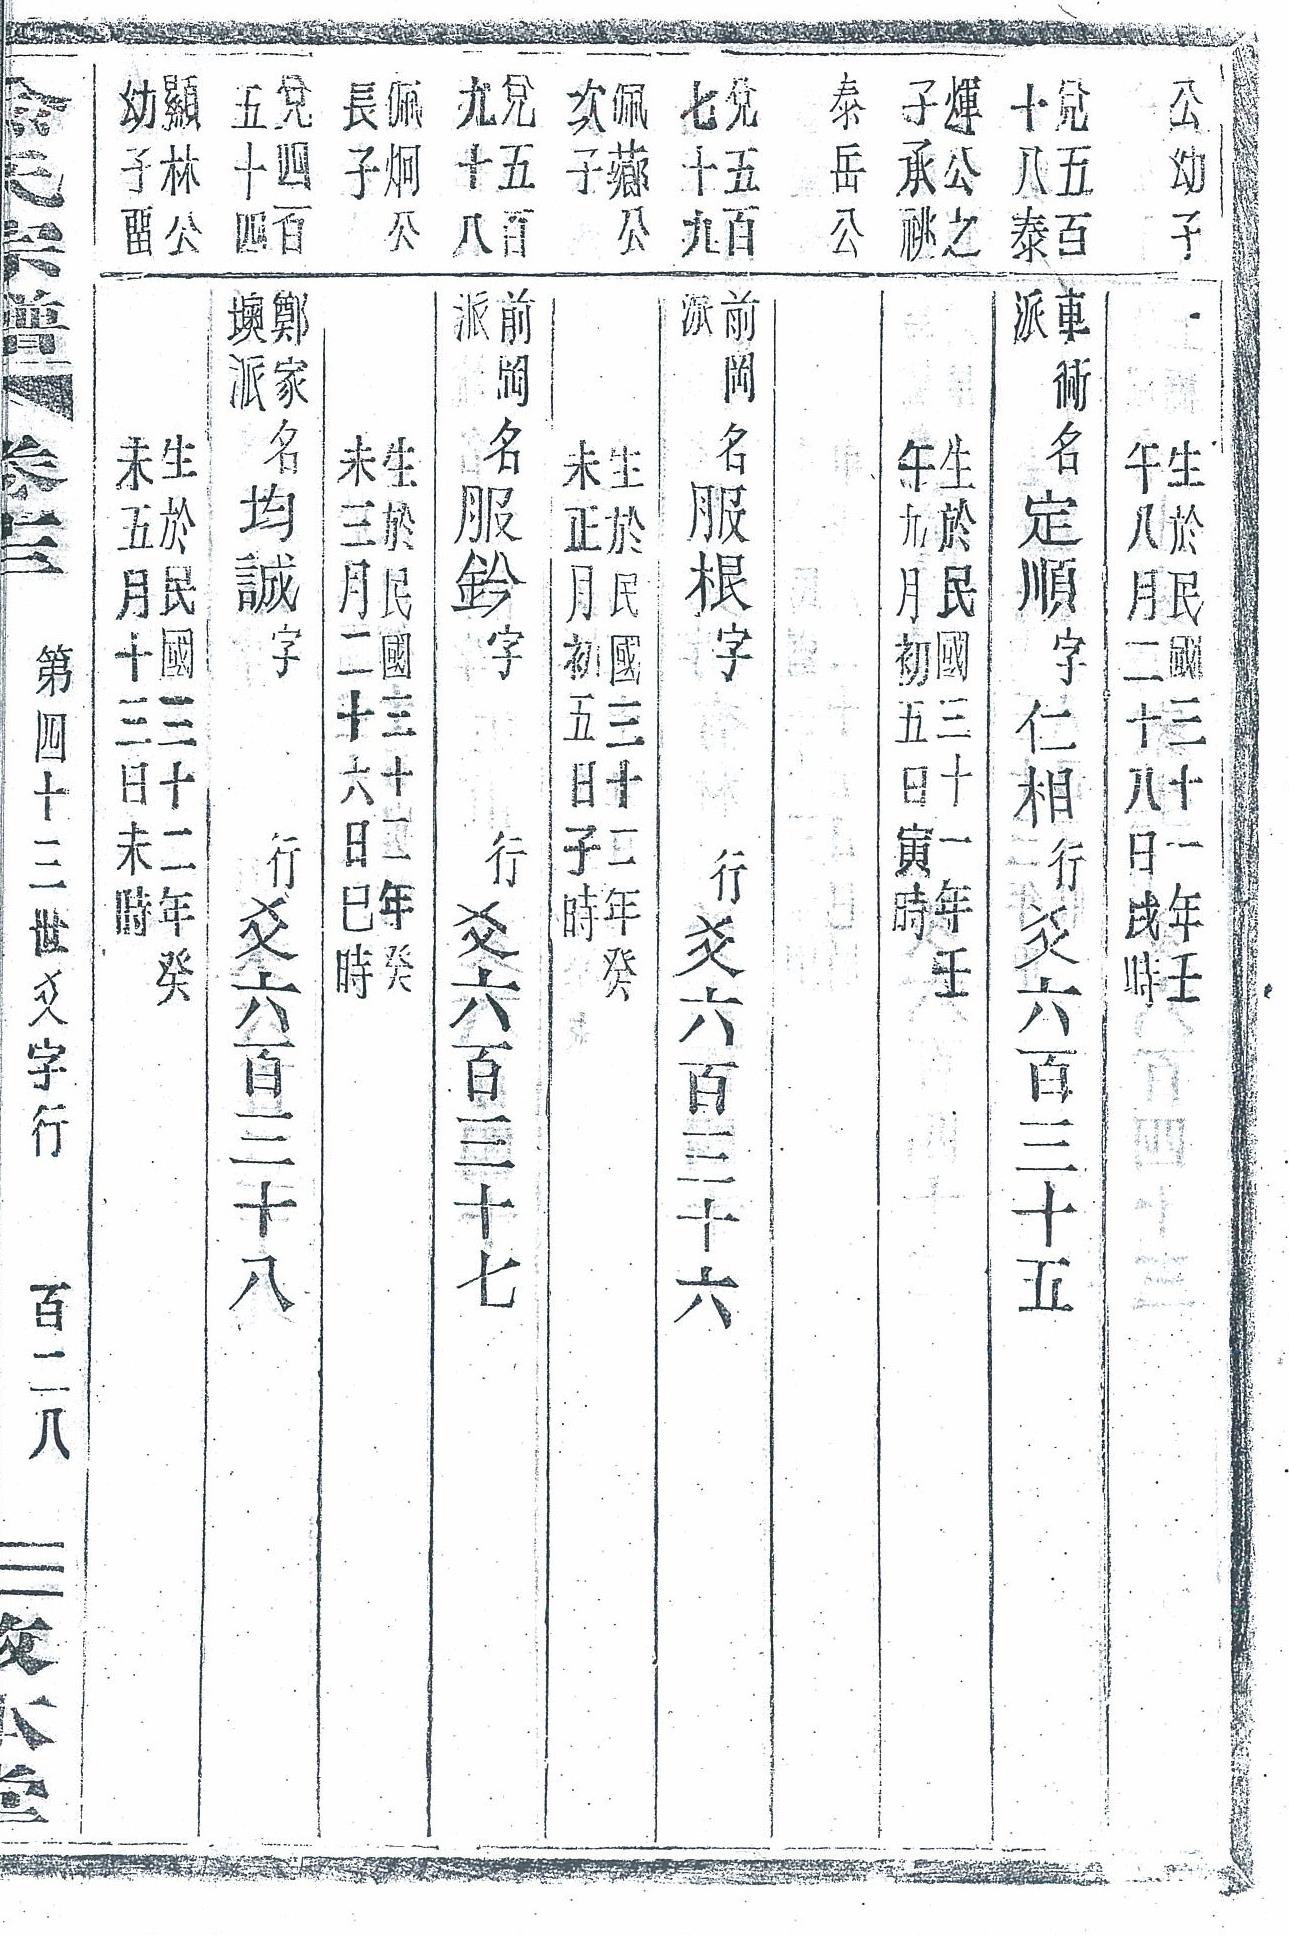 公幼子
生於民國三十一年壬
午八月二十八日戌時
兌五百
十八泰
車衖
派
名定順字仁相行爻六百三十五
煇公之
子承祧
生於民國三十一年壬
午九月初五日寅時
泰岳公
兌五百
七十九
前岡
派
名服根字 行爻六百三十六
佩薌公
次子
生於民國三十二年癸
未正月初五日子時
兌五百
九十八
前岡
派
名服鈐字 行爻六百三十七
佩炯公
長子
生於民國三十二年癸
未三月二十六日巳時
兌四百
五十四
鄭家
塽派
名均誠字 行爻六百三十八
顯林公
幼子畱
生於民國三十二年癸
未五月十三日未時
氏宗譜 卷三
第四十三世爻字行 百二八
本堂